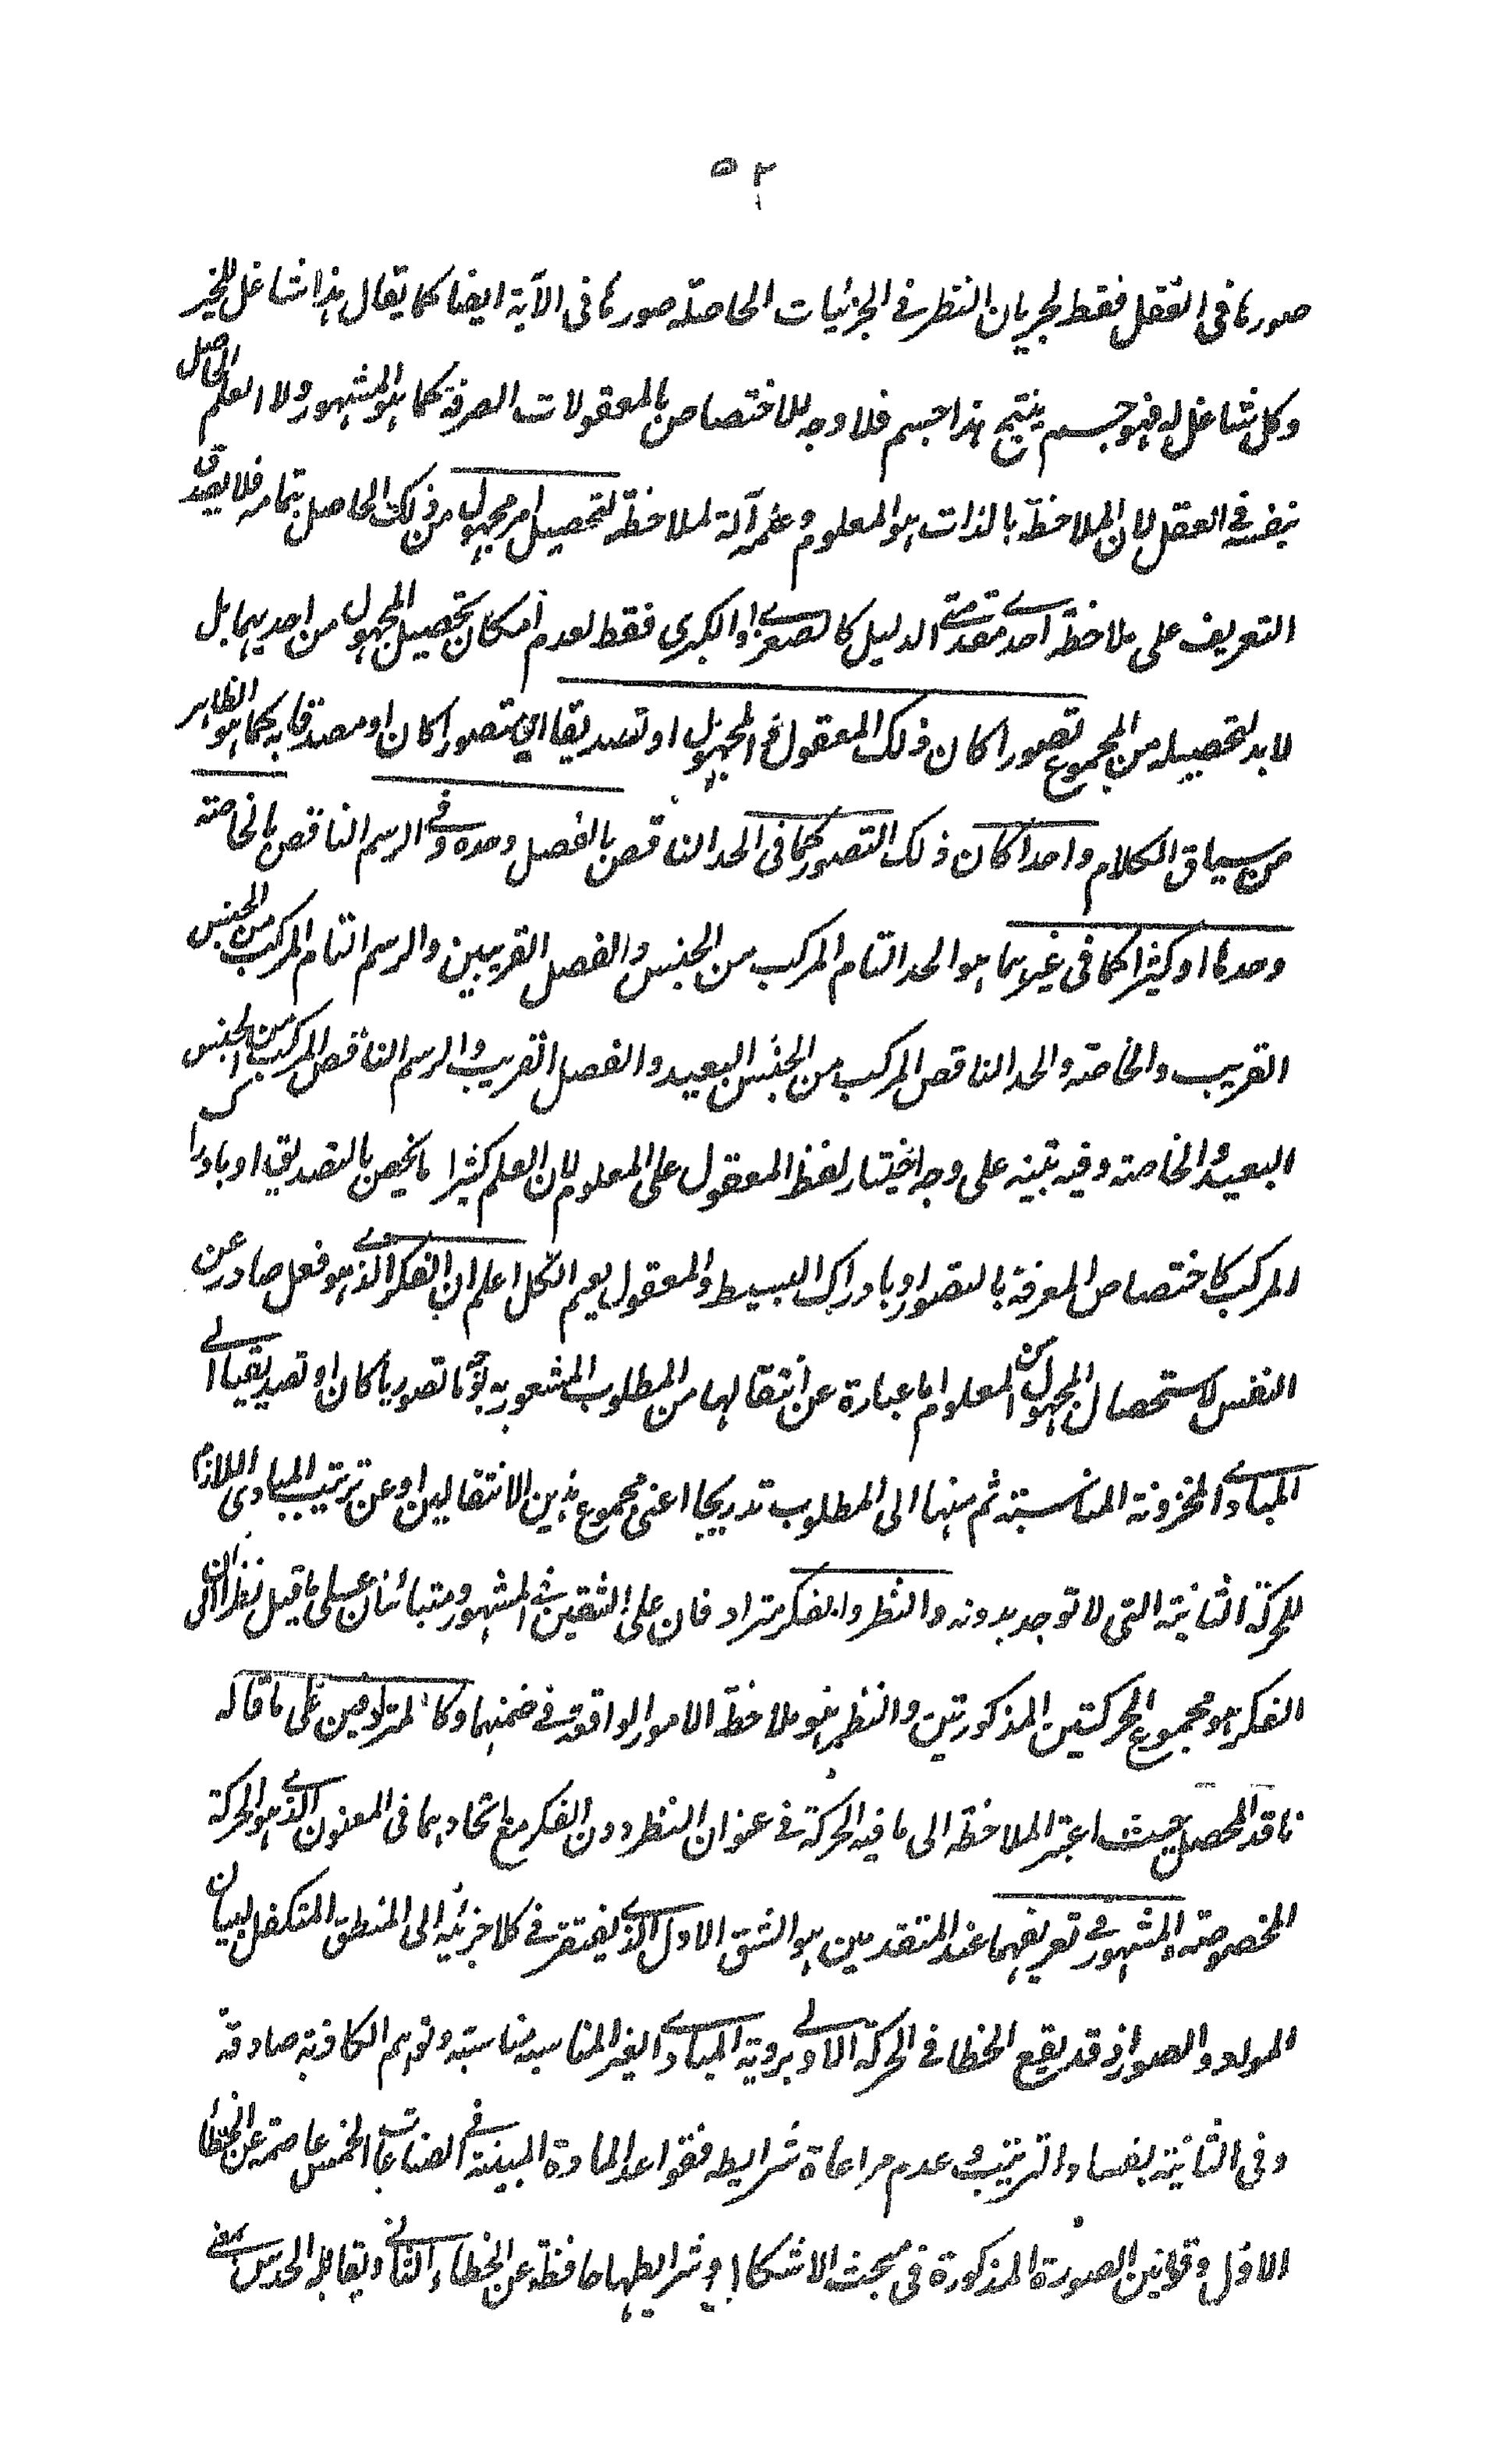 ٥٢
صورها فى العقل فقط لجريان النظر فى الجزئيات الحاصلة صورها فى الآية ايضا كما يقال هذا شاغل للحيز
وكل شاغل له فهو جسم ينتج هذا جسم فلا وجه للاختصاص بالمعقولات الصرفة كما هو المشهور ولا العلم الحاصل
بنفسه فى العقل لان الملاحظ بالذات هو المعلوم وعلمه آلة لملاحظة لتحصيل امر مجهول من ذلك الحاصل بتمامه فلا يصدق
التعريف على ملاحظة احدى مقدمتى الدليل كالصغرى او الكبرى فقط لعدم امكان تحصيل المجهول من احديهما بل
لا بد لتحصيله من المجموع تصورا كان ذلك المعقول المجهول او تصديقا اى تصورا كان او مصدقا به كما هو الظاهر
من سياق الكلام واحدا كان ذلك التصور كما فى الحد الناقص بالفصل وحده وفى الرسم الناقص بالخاصة
وحدها او كثيرا كما فى غيرهما هو الحد التام المركب من الجنس والفصل القريبين والرسم التام المركب من الجنس
القريب والخاصة والحد الناقص المركب من الجنس البعيد والفصل القريب والرسم الناقص المركب من الجنس
البعيد والخاصة وفيه تنبيه على وجه اختيار لفظ المعقول على المعلوم لان العلم كثيرا ما يخص بالتصديق او بادراك
المركب كاختصاص المعرفة بالتصور او بادراك البسيط والمعقول يعم الكل اعلم ان الفكر الذى هو فعل صادر عن
النفس لاستحصال المجهول من المعلوم اما عبارة عن انتقالها من المطلوب المشعور به بوجه ما تصوريا كان او تصديقيا الى
المبادى المخزونة المناسبة ثم منها الى المطلوب تدريجا اعنى مجموع هذين الانتقالين او عن ترتيب المبادى اللازم
للحركة الثانية التى لا توجد بدونه والنظر والفكر مترادفان على الثقين فى المشهور ومتبائنان على ما قيل نظرا الى ان
الفكر هو مجموع الحركتين المذكورتين والنظر هو ملاحظة الامور الواقعة فى ضمنهما وكالمترادفين على ما قاله
ناقد المحصل حيث اعتبر الملاحظة الى ما فيه الحركة فى عنوان النظر دون الفكر مع اتحادهما فى المعنون الذى هو الحركة
المخصوصة والمشهور فى تعريفهما عند المتقدمين هو الشق الاول الذى يفتقر فى كلا جزئيه الى المنطق المتكفل لبيان
المواد والصور اذ قد يقع الخطا فى الحركة الاولى برؤية المبادى الغير المناسبة مناسبة وتوهم الكاذبة صادقة
وفى الثانية بفساد الترتيب وعدم مراعاة شرايطه فقواعد المادة المبينة فى الصناعات الخمس عاصمة عن الخطأ
الاول وقوانين الصورة المذكورة فى مبحث الاشكال وشرايطها حافظة عن الخطاء الثانى ويقابله الحدس بمعنى